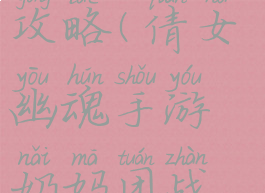 攻略(倩女
yōu hún shǒu yóu
幽魂手游
nǎi mā tuán zhàn
奶妈团战